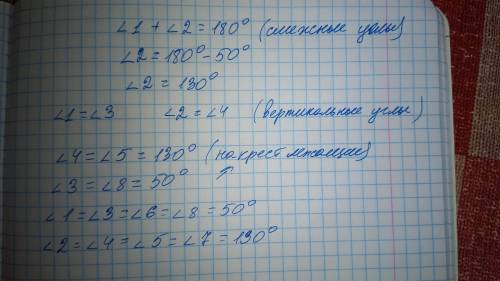 ∠1 + ∠2 = 180° (смежные углы)
∠2 = 180° - 50°
∠2 = 130°
∠1 = ∠3 ∠2 = ∠4 (вертикальные углы)
∠4 = ∠5 = 130° (накрест лежащие)
∠3 = ∠8 = 50° ↑
∠1 = ∠3 = ∠6 = ∠8 = 50°
∠2 = ∠4 = ∠5 = ∠7 = 130°